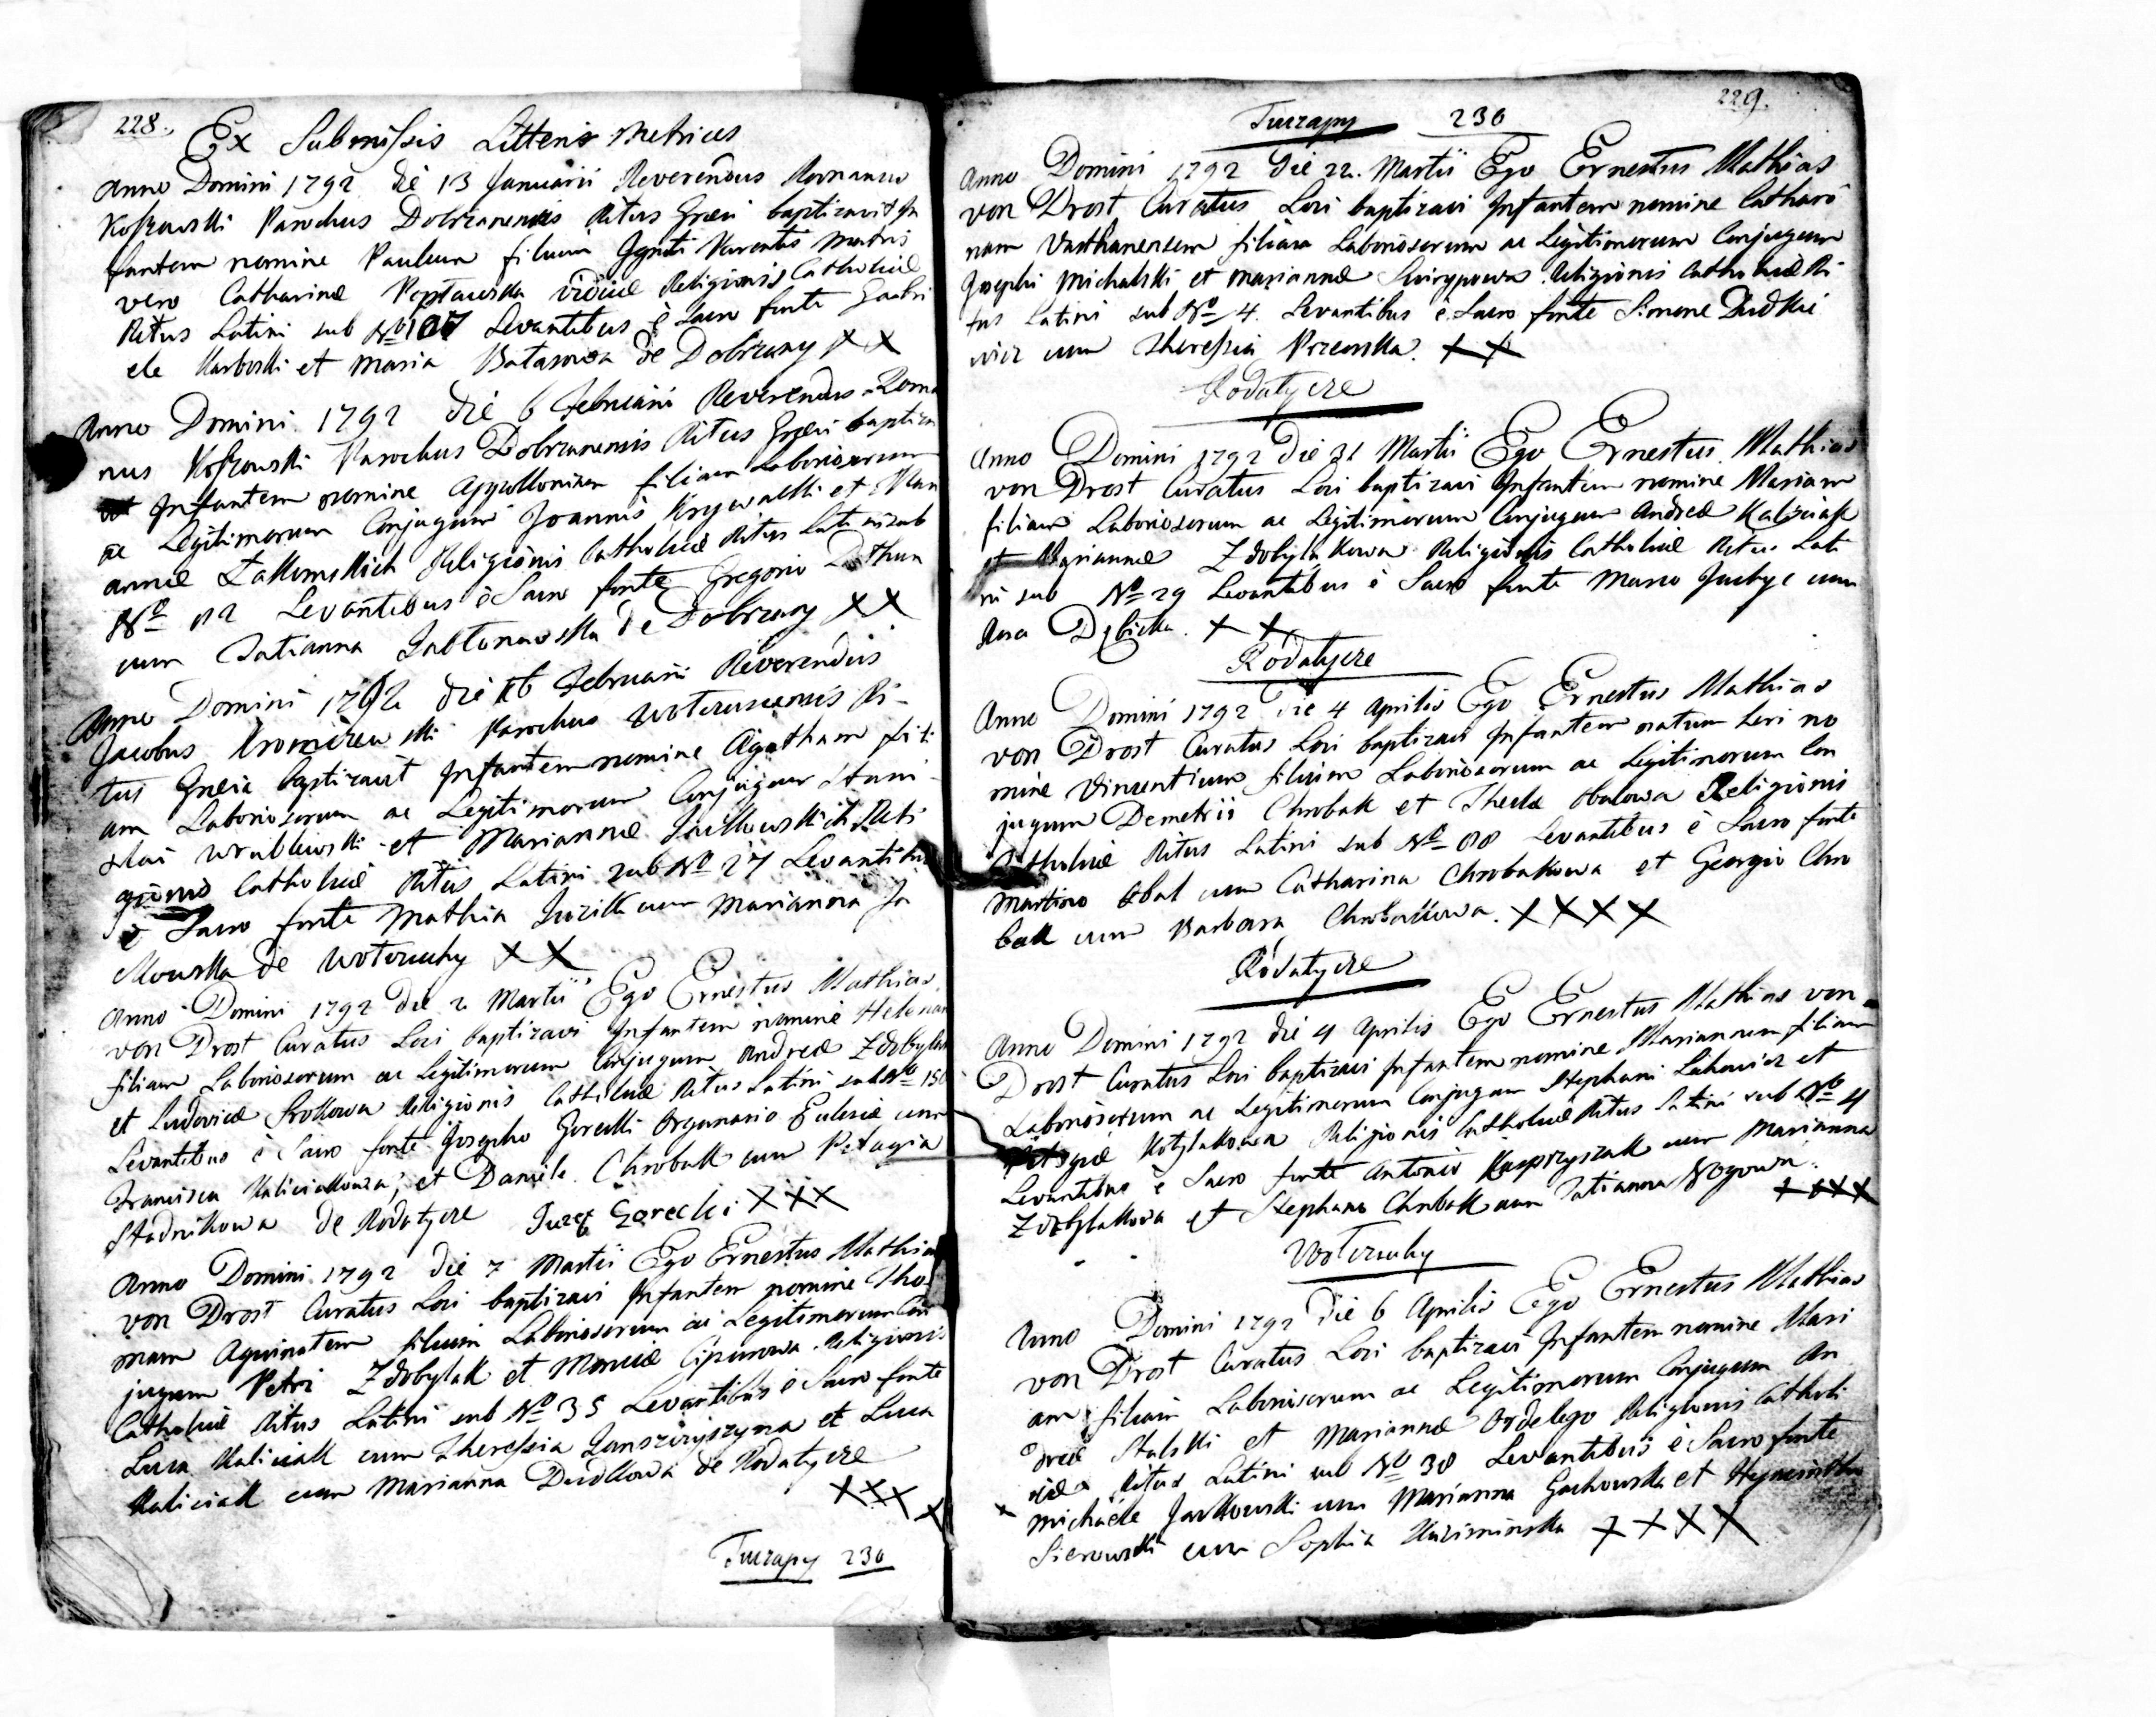 228.
Ex Submissis Litteris Metrices
Anno Domini 1792 die 13 Januarii Reverendus Romanus
Koszowski Parochus Dobrzanensis Ritus Græci baptizavit In
fantem nomine Paulum filium Ignoti Parentis Matris
vero Catharinæ viduæ Religionis Catholicæ
Ritus Latini sub Nº 107 Levantibus è Sacro fonte Gabri
ele Karboski et Maria de Dobrzany XX
Anno Domini 1792 die 6 Februarii Reverendus Roma
nus Koszowski Parochus Dobrzanensis Ritus Græci baptiza
vit Infantem nomine Appolloniam filiam Laboriosorum
ac Legitimorum Conjugum Joannis Krywalski et Mari
annæ Religionis Catholicæ Ritus Latini sub
Nº 02 Levantibus è Sacro fonte Gregorio
cum Tatianna Jabłonowska de Dobrzany XX
Anno Domini 1792 die 16 Februarii Reverendus
Jacobus Parochus Ri-
tus Græci baptizavit Infantem nomine Agatham fili
am Laboriosorum ac Legitimorum Conjugum Stani-
slai Wrublewski et Mariannæ Reli
gionis Catholicæ Ritus Latini sub Nº 27 Levantibus
è Sacro fonte Mathia cum Marianna Ja
ckowska de Wotczuchy XX
Anno Domini 1792 die 2 Martii Ego Ernestus Mathias
von Drost Curatus Loci baptizavi Infantem nomine Helenam
filiam Laboriosorum ac Legitimorum Conjugum Andreæ Zdobylak
et Ludovicæ Srokowa Religionis Catholicæ Ritus Latini sub Nº 150
Levantibus è Sacro fonte Josepho Gorecki Organario Eclesiæ cum
Francisca Kaliciakowa, et Daniele Chrobakk cum Pelagia
Stadnikowa de Rodatycze Jozef Gorecki XXX
Anno Domini 1792 die 7 Martii Ego Ernestus Mathias
von Drost Curatus Loci baptizavi Infantem nomine Tho-
mam Aquinatem filium Laboriosorum ac Legitimorum Con
jugum Petri Zdobylak et Monicæ Religionis
Catholicæ Ritus Latini sub Nº 35 Levantibus è Sacro fonte
Luca Kaliciak cum Theressia et Luca
Kaliciak cum Marianna Dudkowa de Rodatycze
XXXX
Tuczapy 230
229.
Tuczapy 230
Anno Domini 1792 Die 22. Martii Ego Ernestus Mathias
von Drost Curatus Loci baptizavi Infantem nomine Cathari
nam filiam Laboriosorum ac Legitimorum Conjugum
Josephi Michalski et Mariannæ Religionis Catholicæ Ri
tus Latini sub Nº 4. Levantibus è Sacro fonte Simone Dudkie
wicz cum Theressia XX
Rodatycze
Anno Domini 1792 Die 31 Martii Ego Ernestus Mathias
von Drost Curatus Loci baptizavi Infantem nomine Mariam
filiam Laboriosorum ac Legitimorum Conjugum Andreæ Kaliciak
et Mariannæ Zdobylakowa Religionis Catholicæ Ritus Lati
ni sub Nº 29 Levantibus è Sacro fonte cum
Rosa Dębicka. XX
Rodatycze
Anno Domini 1792 Die 4 Aprilis Ego Ernestus Mathias
von Drost Curatus Loci baptizavi Infantem natum Loci no
mine Vincentium filium Laboriosorum ac Legitimorum Con
jugum Demetrii Chrobak et Theclæ Obalowa Religionis
Catholicæ Ritus Latini sub Nº 88 Levantibus è Sacro fonte
Martino Obal cum Catharina Chrobakowa et Georgio Chro
bak cum Barbara Chrobakkowa. XXXX
Rodatycze
Anno Domini 1792 die 4 Aprilis Ego Ernestus Mathias von
Drost Curatus Loci baptizavi Infantem nomine Mariannam filiam
Laboriosorum ac Legitimorum Conjugum Stephani et
Kotylakowa Religionis Catholicæ Ritus Latini sub Nº 4
Levantibus è Sacro fonte Antonio Kasprzyszak cum Marianna
Zdobylakowa et Stephano Chrobak cum Tatianna
XXXX
Wotczuchy
Anno Domini 1792 Die 6 Aprilis Ego Ernestus Mathias
von Drost Curatus Loci baptizavi Infantem nomine Mari
am filiam Laboriosorum ac Legitimorum Conjugum An
dreæ Stalski et Mariannæ Religionis Catholi
cæ Ritus Latini sub Nº 38 Levantibus è Sacro fonte
Michaele Jackowski cum Marianna et Hyacintho
cum Sophia XXXX